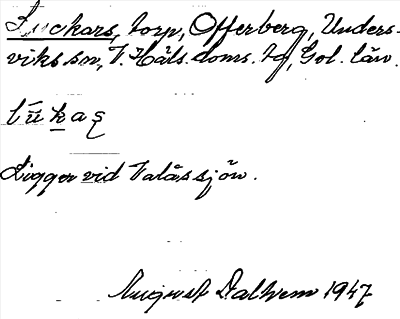 Luckars, torp, Offerberg, Unders-
viks sn, V. Häls. doms. tg, Gvl. län.
lūkaş
Ligger vid Valåssjön.
August Dalhem 1947